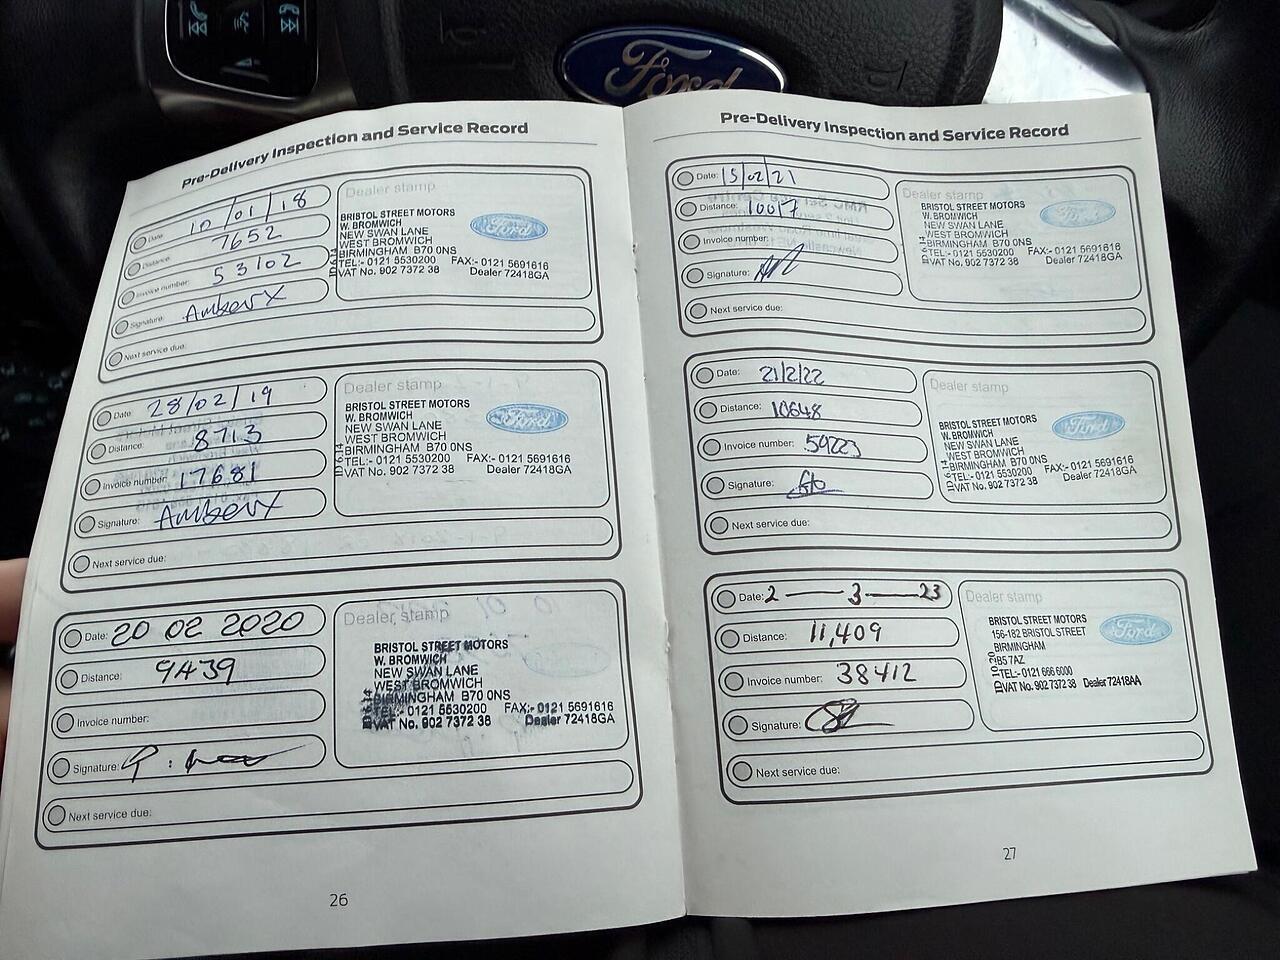 Ford
Pre-Delivery Inspection and Service Record
Date: 10/01/18
Distance: 7652
Invoice number: 53102
Signature:
Next service due:
Dealer stamp
BRISTOL STREET MOTORS
W. BROMWICH
NEW SWAN LANE
WEST BROMWICH
BIRMINGHAM B70 0NS
TEL:- 0121 5530200 FAX:- 0121 5691616
VAT No. 902 7372 38 Dealer 72418GA
Ford
Date: 28/02/19
Distance: 8713
Invoice number: 17681
Signature:
Next service due:
Dealer stamp
BRISTOL STREET MOTORS
W. BROMWICH
NEW SWAN LANE
WEST BROMWICH
BIRMINGHAM B70 0NS
TEL:- 0121 5530200 FAX:- 0121 5691616
VAT No. 902 7372 38 Dealer 72418GA
Ford
Date: 20 02 2020
Distance: 9439
Invoice number:
Signature:
Next service due:
Dealer stamp
BRISTOL STREET MOTORS
W. BROMWICH
NEW SWAN LANE
WEST BROMWICH
BIRMINGHAM B70 0NS
TEL:- 0121 5530200 FAX:- 0121 5691616
VAT No. 902 7372 38 Dealer 72418GA
26
Pre-Delivery Inspection and Service Record
Date: 15/02/21
Distance: 10017
Invoice number:
Signature:
Next service due:
Dealer stamp
BRISTOL STREET MOTORS
W. BROMWICH
NEW SWAN LANE
WEST BROMWICH
BIRMINGHAM B70 0NS
TEL:- 0121 5530200 FAX:- 0121 5691616
VAT No. 902 7372 38 Dealer 72418GA
Ford
Date: 21/2/22
Distance: 10648
Invoice number: 59223
Signature:
Next service due:
Dealer stamp
BRISTOL STREET MOTORS
W. BROMWICH
NEW SWAN LANE
WEST BROMWICH
BIRMINGHAM B70 0NS
TEL:- 0121 5530200 FAX:- 0121 5691616
VAT No. 902 7372 38 Dealer 72418GA
Ford
Date: 2 — 3 — 23
Distance: 11,409
Invoice number: 38412
Signature:
Next service due:
Dealer stamp
BRISTOL STREET MOTORS
156-182 BRISTOL STREET
BIRMINGHAM
B5 7AZ
TEL:- 0121 666 6000
VAT No. 902 7372 38 Dealer 72418AA
Ford
27